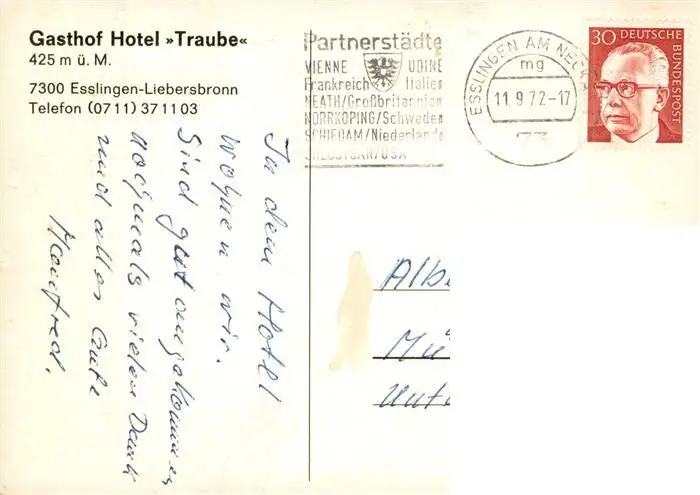 Gasthof Hotel »Traube«
425 m ü. M.
7300 Esslingen-Liebersbronn
Telefon (0711) 37 11 03
Partnerstädte
VIENNE UDINE
Frankreich Italien
NEATH/Großbritannien
NORRKÖPING/Schweden
SCHIEDAM/Niederlande
SHEBOYGAN/USA
ESSLINGEN AM NECKAR
mg
11.9.72-17
73
30 DEUTSCHE BUNDESPOST
In dem Hotel
wohnen wir.
Sind gut angekommen
nochmals vielen Dank
und alles Gute
Manfred.
Albe
Mü
Unte